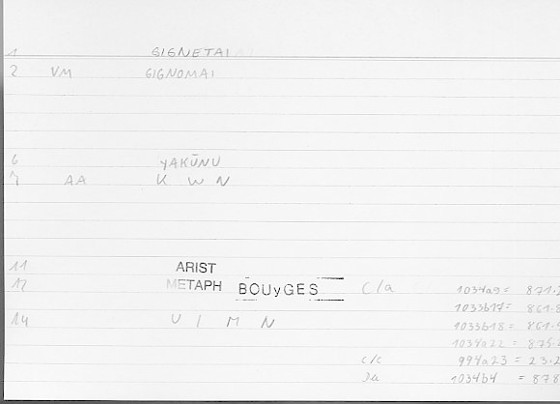 1 GIGNETAI
2 VM GIGNOMAI
6 yAKŪNU
7 AA K W N
11 ARIST
12 METAPH BOUyGES c/a 1034a9 = 871.
1033b17 = 861.
14 U I M N 1033b18 = 861.
1034a22 = 875.
c/c 994a23 = 23.2
Ja 1034b4 = 878